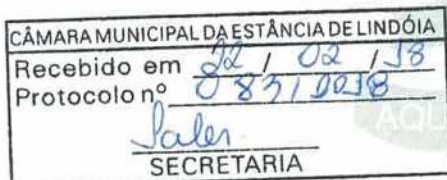 CÂMARA MUNICIPAL DA ESTÂNCIA DE LINDÓIA
Recebido em 22 / 02 / 18
Protocolo nº 083/2018
Sales
SECRETARIA